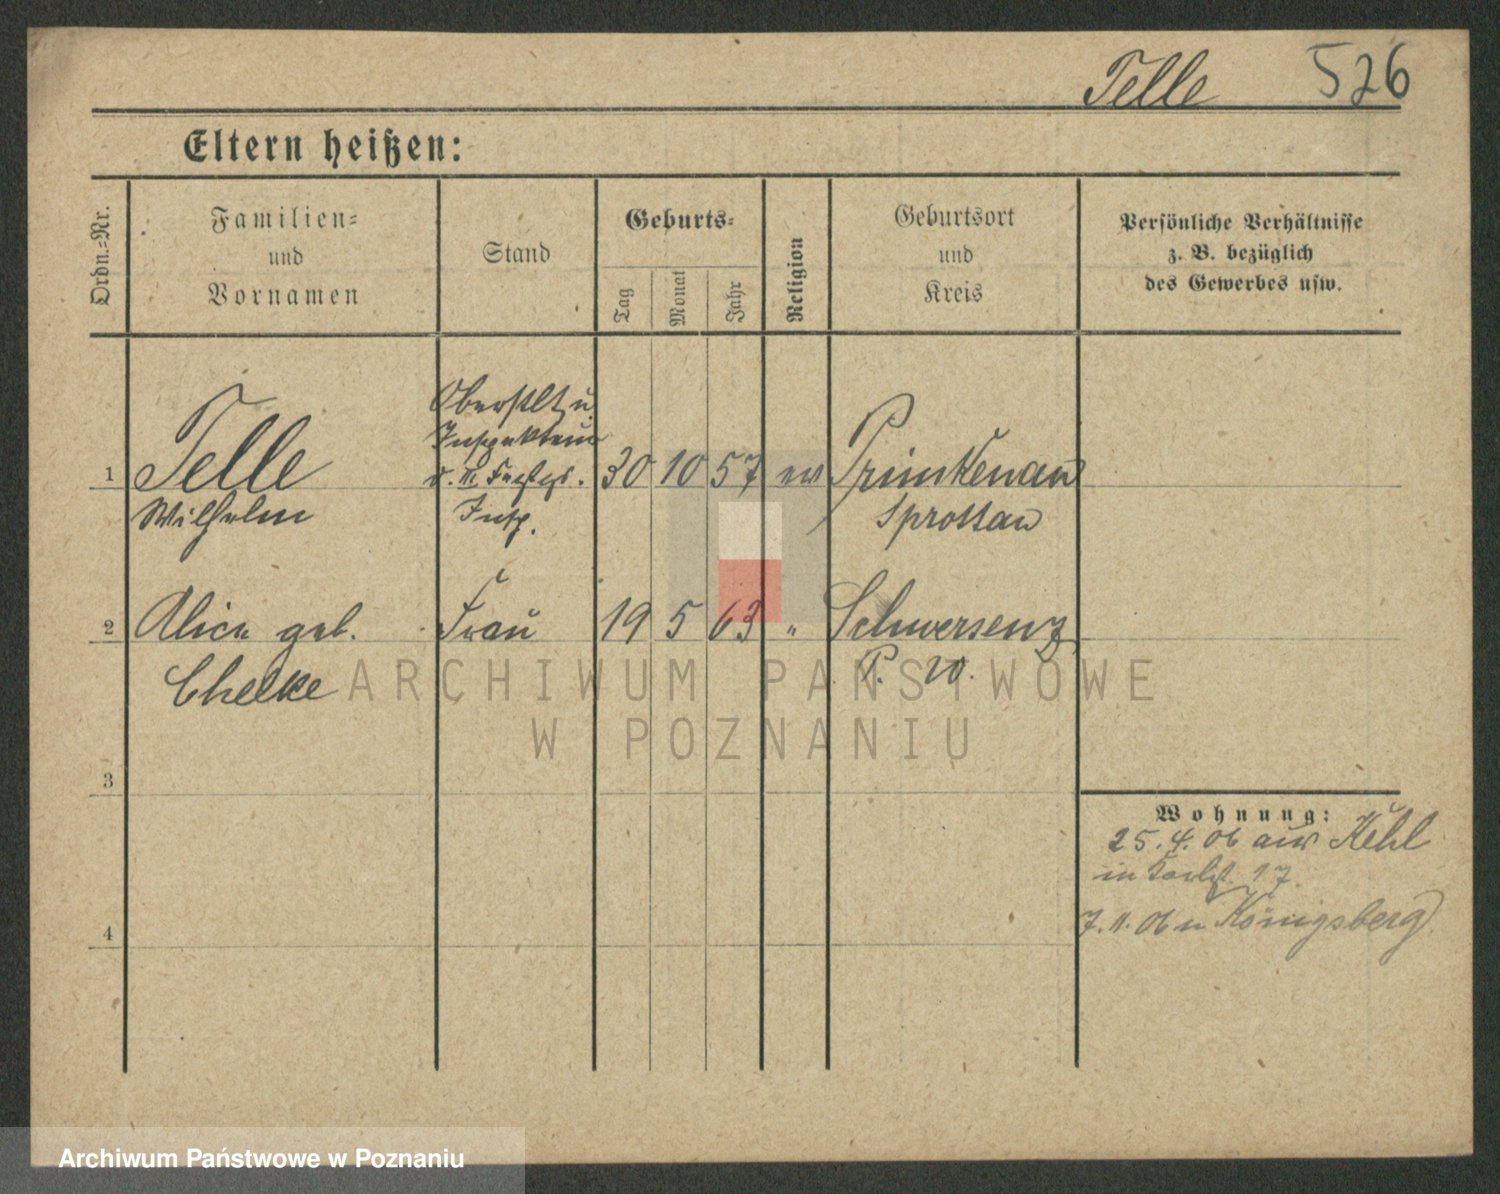 Telle 526
Eltern heißen:
Ordn.=Nr.
Familien=
und
Vornamen
Stand
Geburts=
Tag
Monat
Jahr
Religion
Geburtsort
und
Kreis
Persönliche Verhältnisse
z. B. bezüglich
des Gewerbes usw.
1 Telle
Wilhelm
Oberstlt u.
Inspekteur
d.
Insp.
30 10 57 ev
Primkenau
Sprottau
2 Alice geb.
Chelke
Frau
19 5 63 "
Schwersenz
P. W.
3
4
Wohnung:
25. 4. 06 aus Kehl
in 17
7. 11. 06 n Königsberg
ARCHIWUM PAŃSTWOWE
W POZNANIU
Archiwum Państwowe w Poznaniu